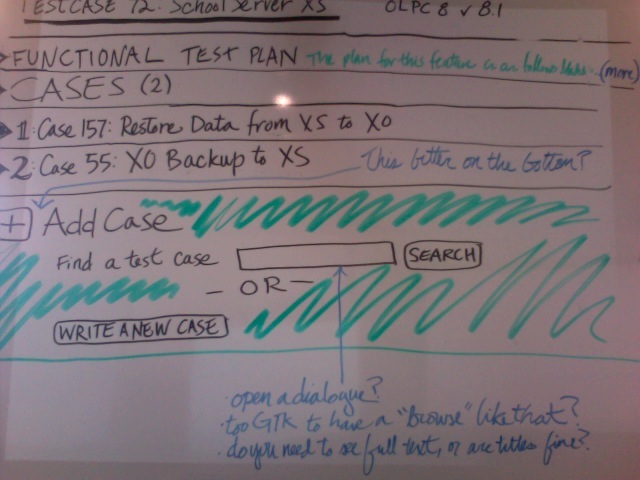 TESTCASE 72: School Server XS OLPC 8 v 8.1
FUNCTIONAL TEST PLAN The plan for this feature is as follows blah... (more)
CASES (2)
1: Case 157: Restore Data from XS to XO
2: Case 55: XO Backup to XS This better on the bottom?
+ Add Case
Find a test case SEARCH
- OR -
WRITE A NEW CASE
· open a dialogue?
· too GTK to have a "browse" like that?
· do you need to see full text, or are titles fine?